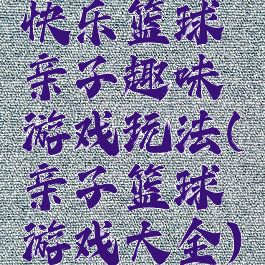 快乐篮球
亲子趣味
游戏玩法(
亲子篮球
游戏大全)